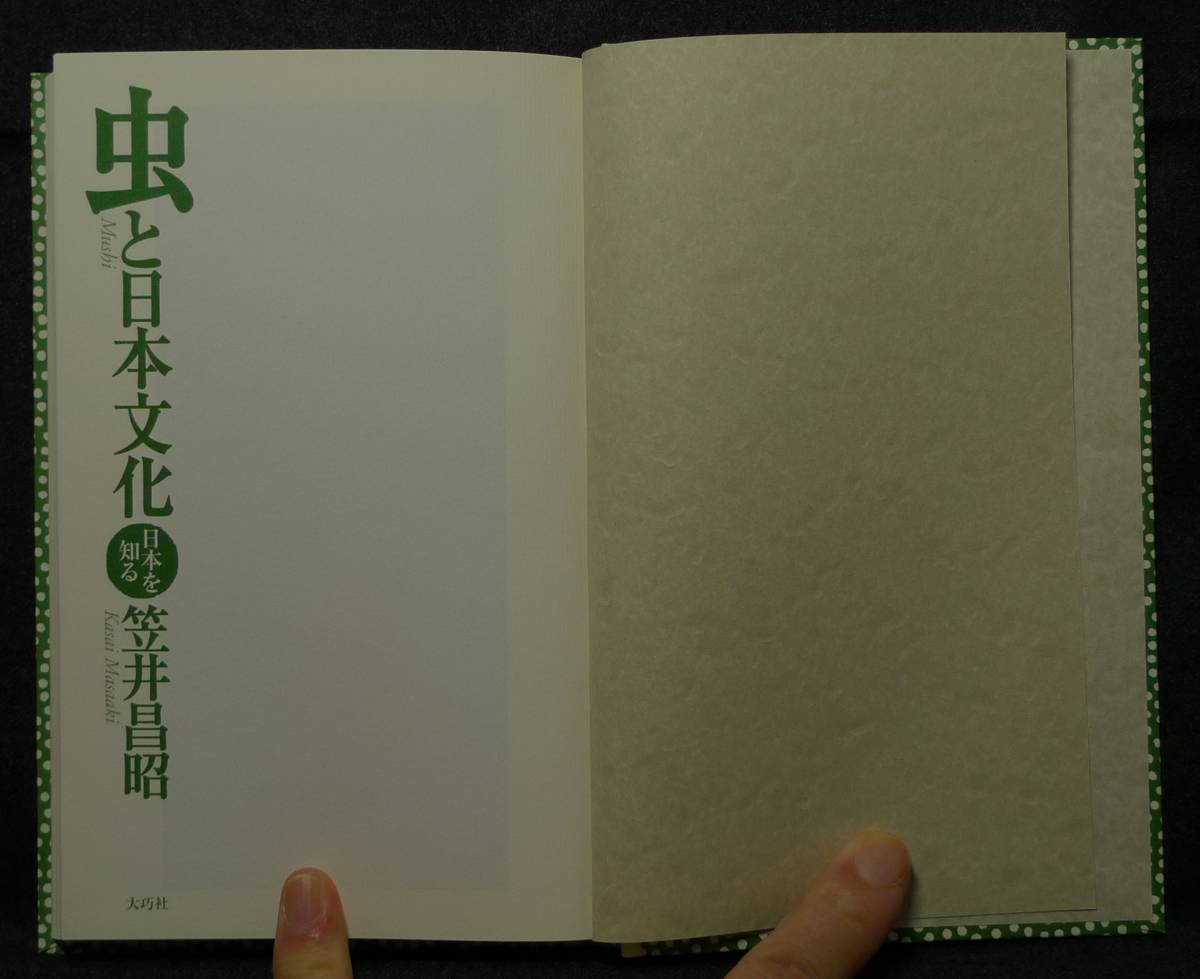 虫と日本文化
Mushi
日本を
知る
笠井昌昭
Kasai Masaaki
大巧社